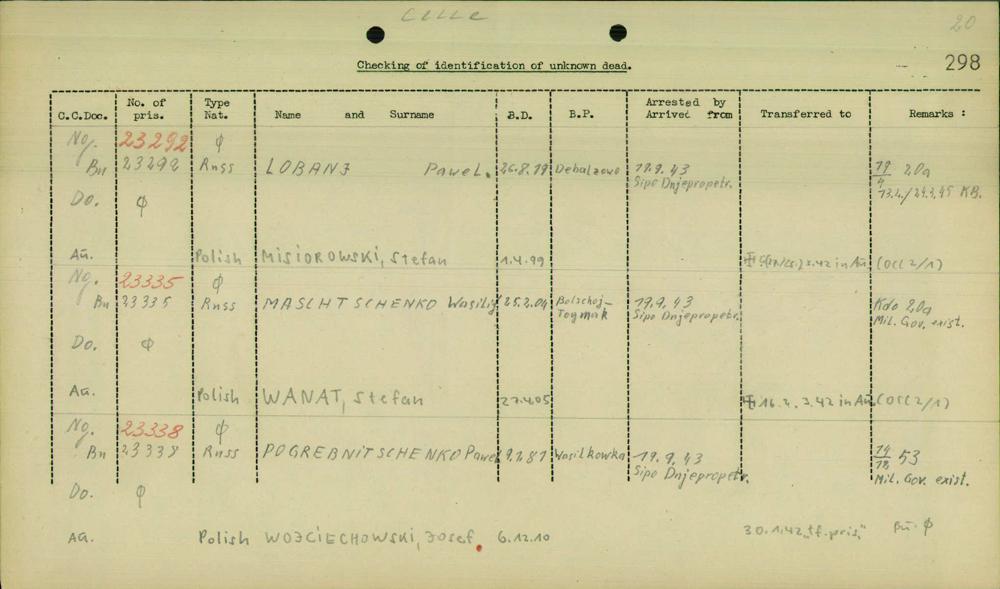 Celle
20
Checking of identification of unknown dead.
298
C.C.Doc. No. of pris. Type Nat. Name and Surname B.D. B.P. Arrested by Arrived from Transferred to Remarks :
Ng. 23292 φ
Bu 23292 Russ LOBANJ Pawel. 26.8.19 Debalzowo 19.9.43 Sipo Dnjepropetr. 20a
13.2./29.3.45 KB.
Do. φ
Au. Polish MISIOROWSKI, Stefan 1.4.99 3.42 in Au (OCC 2/1)
Ng. 23335 φ
Bu 23335 Russ MASCHTSCHENKO Wasilij 25.2.04 Bolschoj-Toymak 19.9.43 Sipo Dnjepropetr. Kdo 20a
Mil. Gov. exist.
Do. φ
Au. Polish WANAT, Stefan 27.4.05 16.2.3.42 in Au (OCC 2/1)
Ng. 23338 φ
Bu 23338 Russ POGREBNITSCHENKO Pawel 9.2.81 Wasilkowka 19.9.43 Sipo Dnjepropetr. 53
Mil. Gov. exist.
Do. φ
Au. Polish WOJCIECHOWSKI, Josef. 6.12.10 30.1.42 "tf. pris." Bu. φ